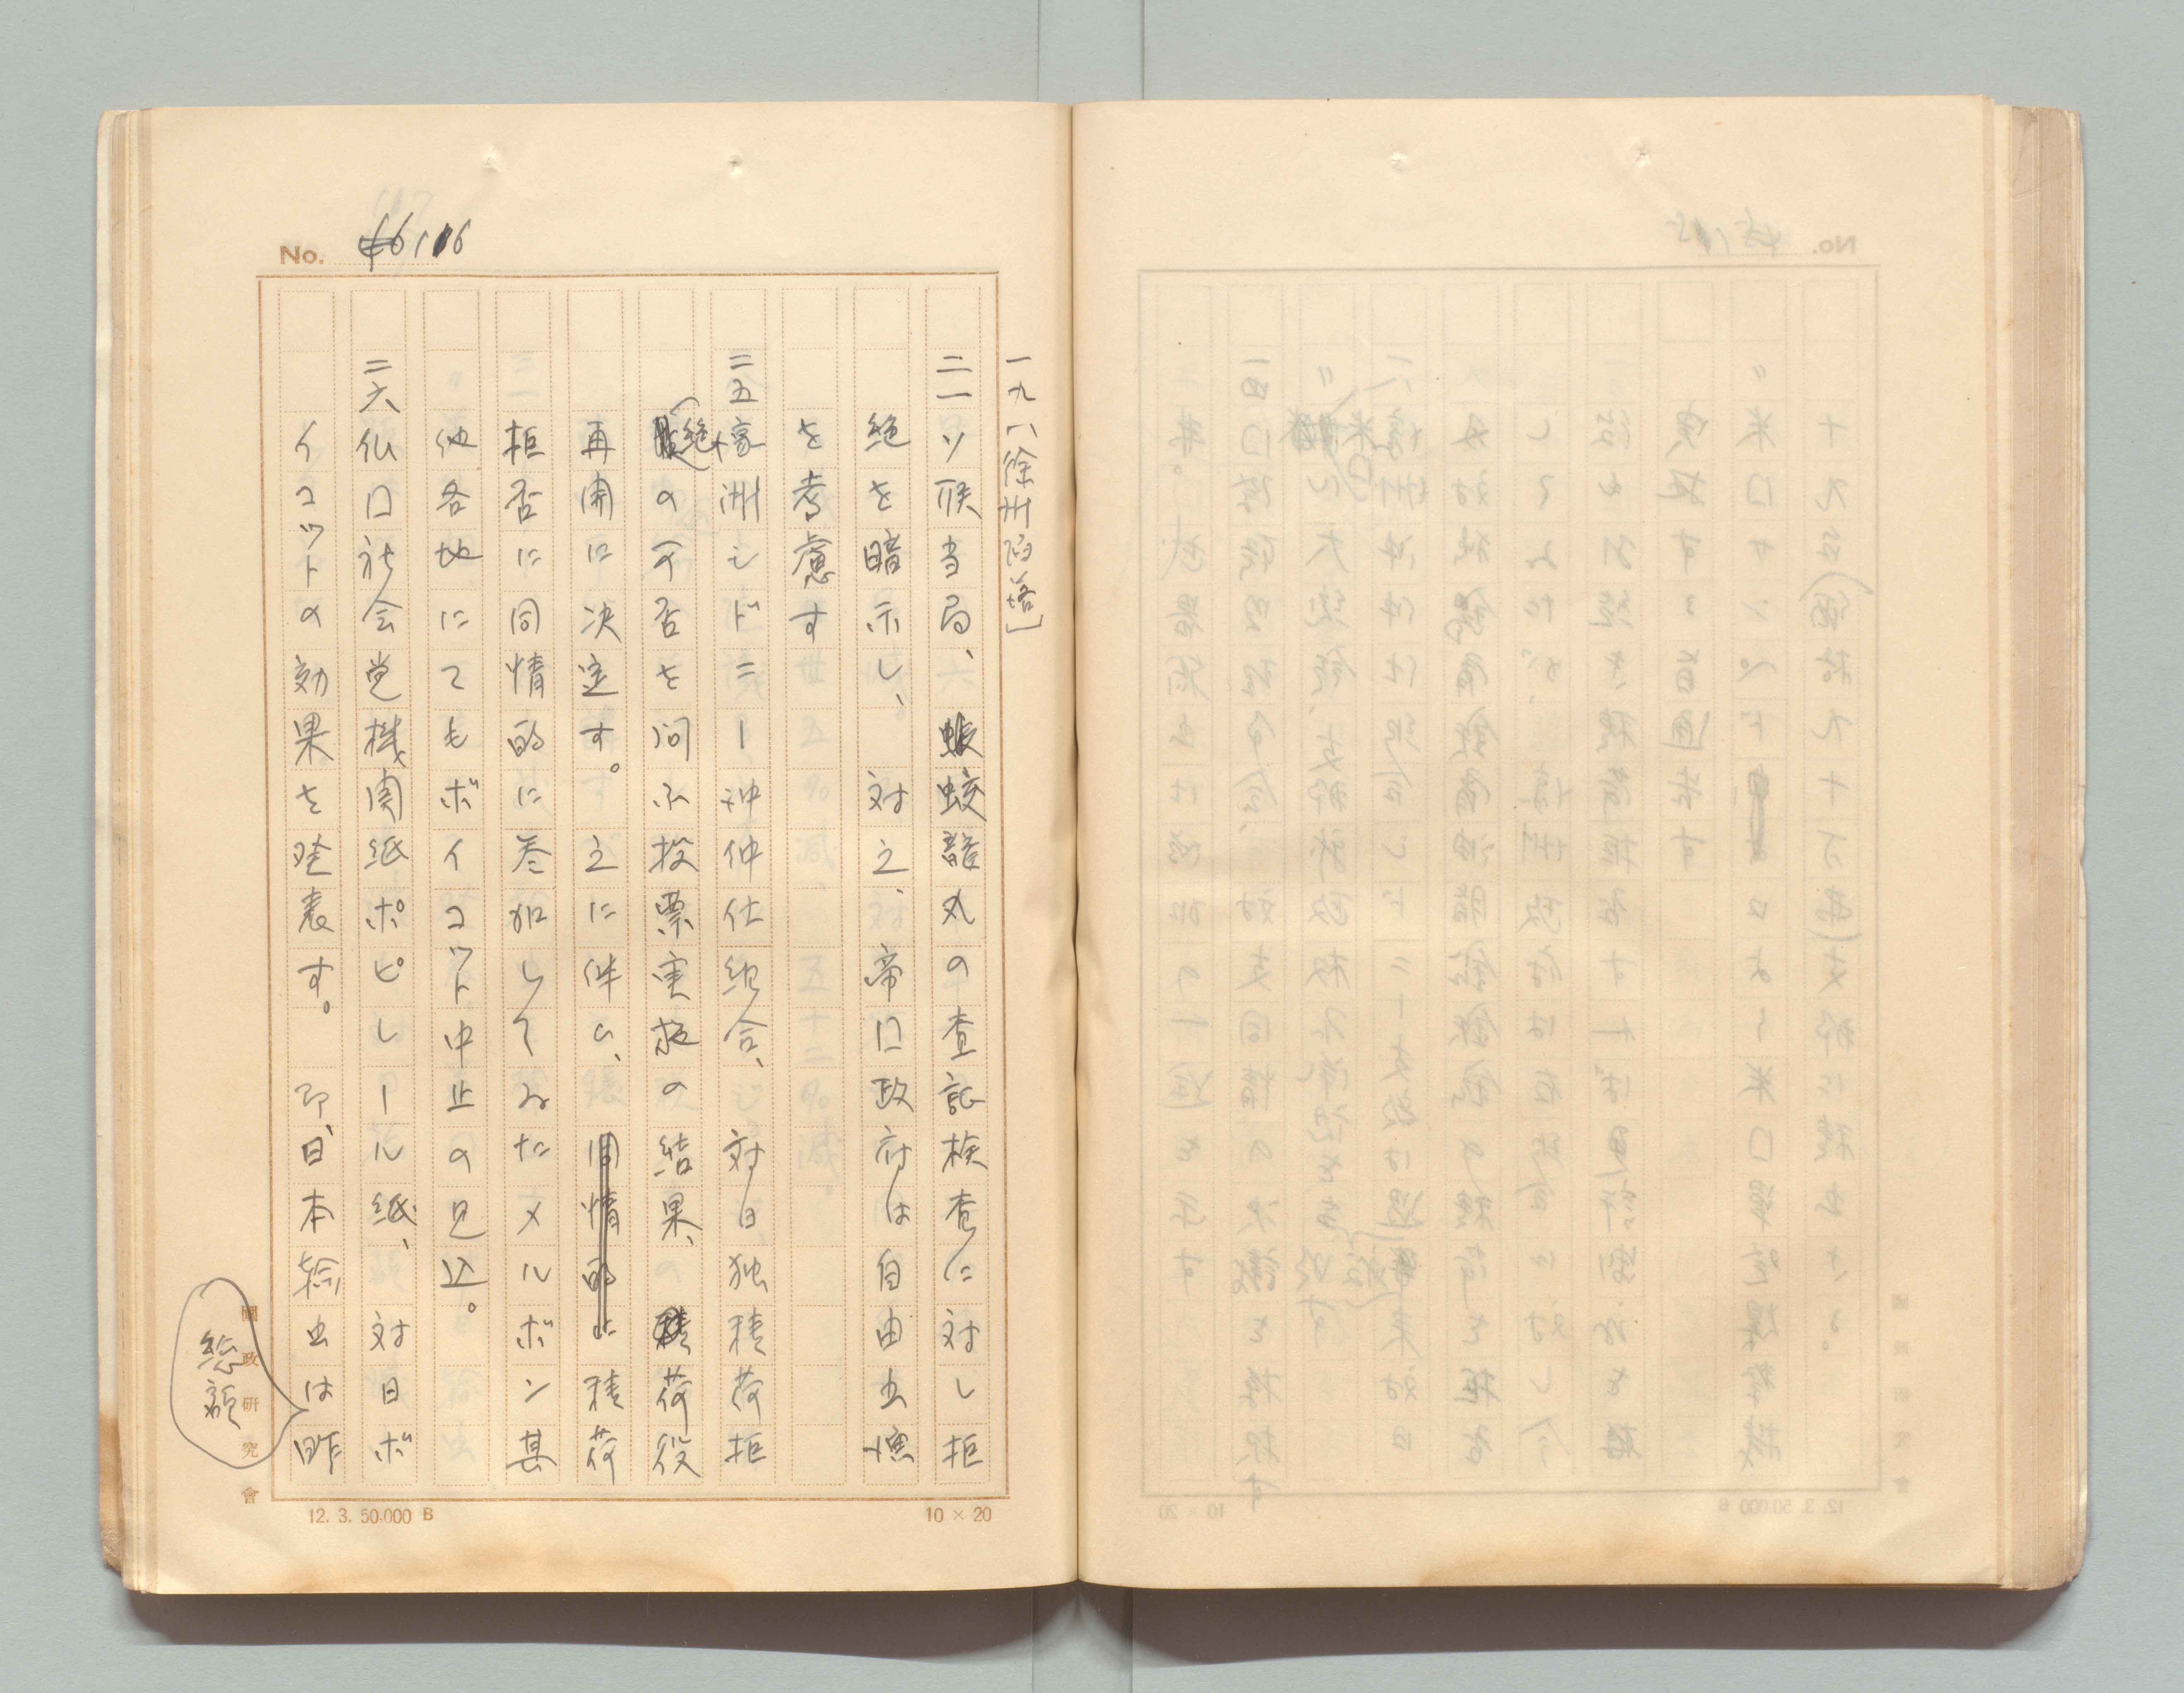 No. 116
一九、(徐州陥落)
二一ソ聯当局、蛟龍丸の査証検査に対し拒
絶を暗示し、対之、帝口政府は自由出漁
を考慮す
二五濠洲シドニー沖仲仕組合、対日、独積荷拒
絶の可否を問ふ投票実施の結果、積荷役
再開に決定す。之に伴ひ、積荷
拒否に同情的に参加してゐたメルボン其
他各地にてもボイコット中止の見込。
二六仏口社会党機関紙ポピレール紙、対日ボ
イコットの効果を発表す。即、日本輸出は昨
総額
國政研究會
12. 3. 50.000 B
10 × 20